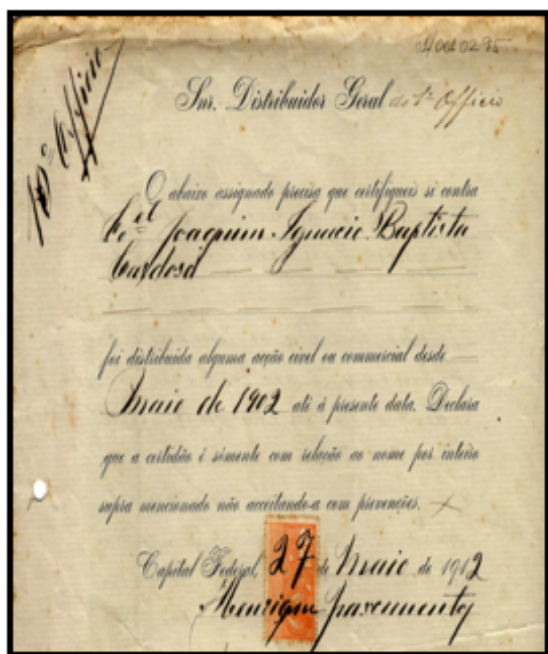 01/001 0295
Snr. Distribuidor Geral do 1º Officio
10º Officio
O abaixo assignado precisa que certifiqueis si contra
Joaquim Ignacio Baptista
Cardoso
foi distribuida alguma acção civel ou commercial desde
Maio de 1902 até á presente data. Declara
que a certidão é sómente com relação ao nome por inteiro
supra mencionado não acceitando-a com prevenções.
Capital Federal, 27 de Maio de 1912